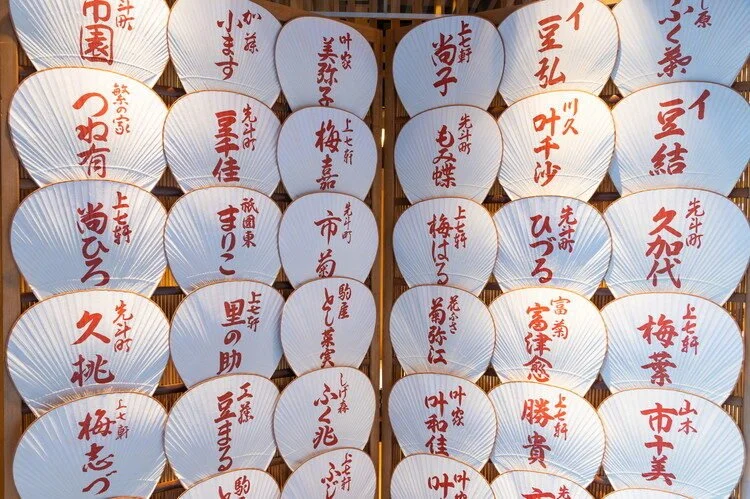 先斗町
市園
加藤
小ます
叶家
美弥子
上七軒
尚子
イ
豆弘
ふく葵
繁の家
つね有
先斗町
豆千佳
上七軒
梅嘉
先斗町
もみ蝶
川久
叶千沙
イ
豆結
上七軒
尚ひろ
祇園東
まりこ
先斗町
市菊
上七軒
梅はる
先斗町
ひづる
先斗町
久加代
先斗町
久桃
上七軒
里の助
駒屋
とし菜実
花ふさ
菊弥江
富菊
富津愈
上七軒
梅葉
上七軒
梅志づ
工藤
豆まる
しげ森
ふく兆
叶家
叶和佳
上七軒
勝貴
山本
市十美
上七軒
上七軒
叶家